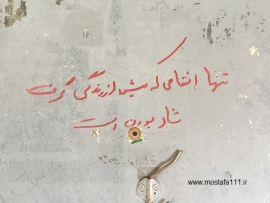 تنها انتقامی که میشه از زندگی گرفت
شاد بودن است
www.mostafa111.ir